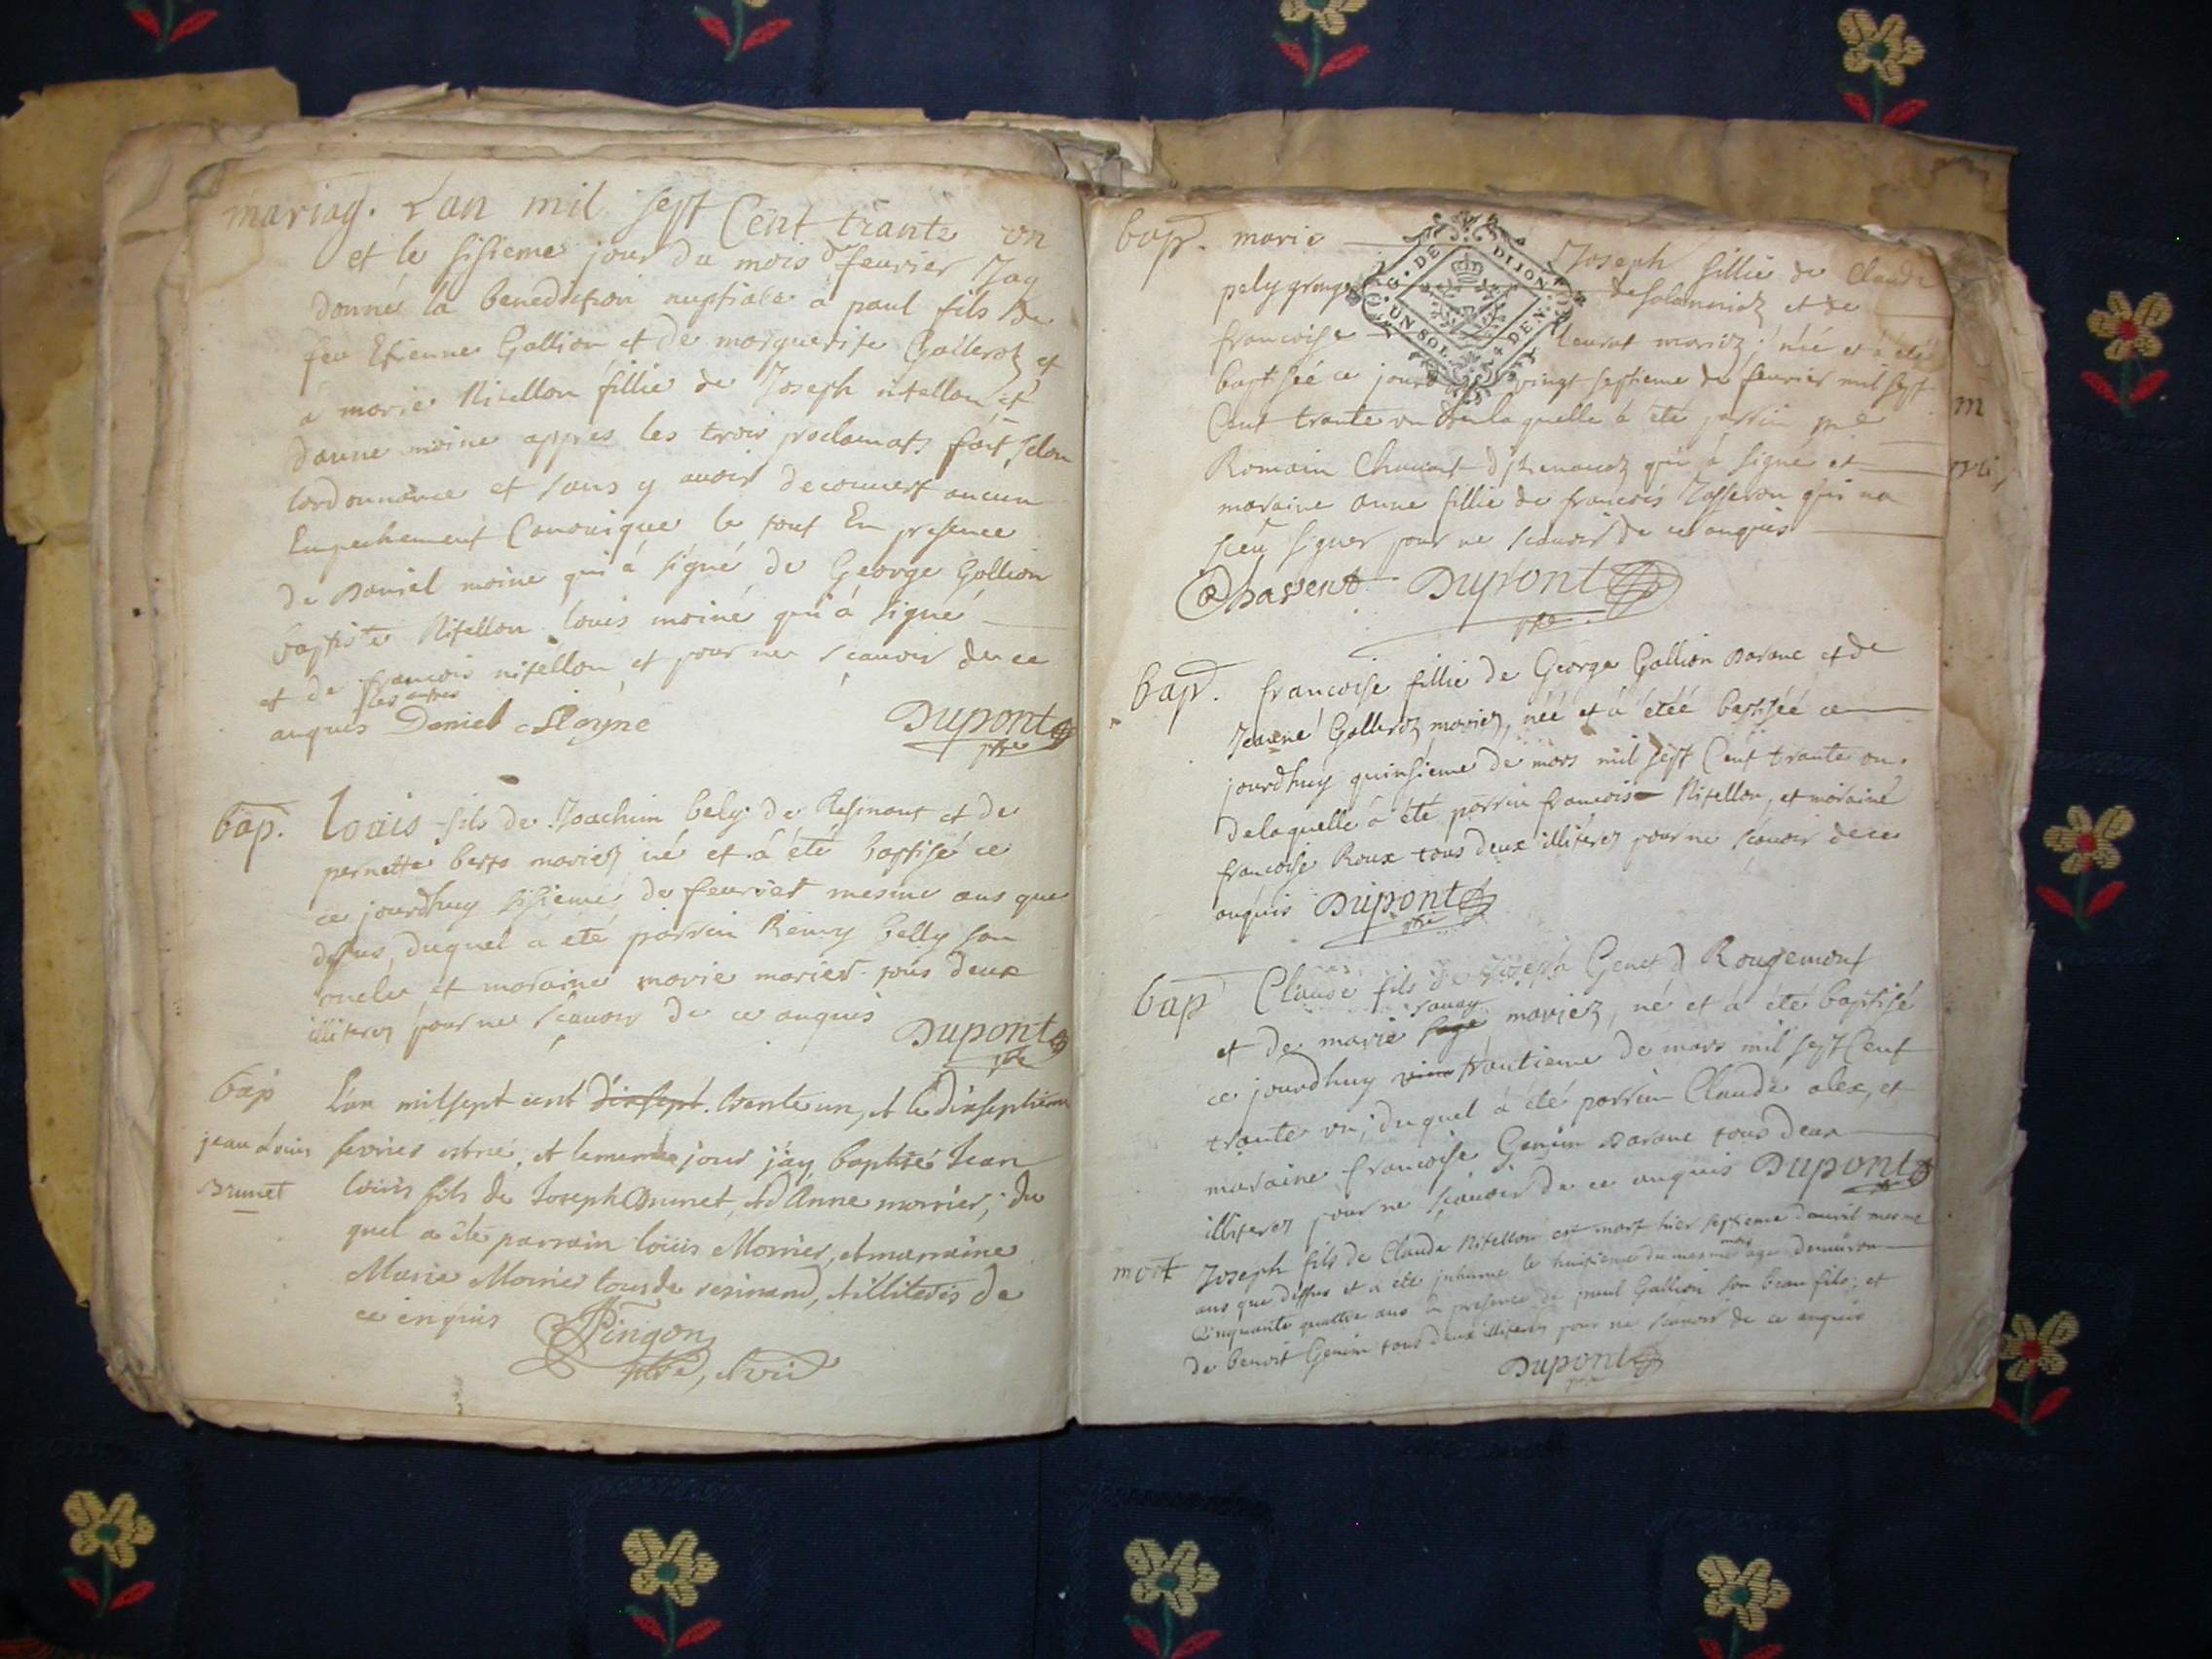 mariag. L'an mil sept Cent trante un
et le sisieme jour du mois de feurier Jay
donné la benediction nuptiale a paul fils de
feu Etienne Gallion et de marguerite Galleroz et
a marie Nitellon fillie de Joseph nitellon et
danne moine appres les trois proclamats fait selon
lordonnance et sans y auoir decouuert aucun
Empechement Canonique le tout En presence
de Daniel moine qui á signé de George Gallion
baptiste Nitellon louis moine qui á signé
et de francois nitellon et pour ne scauoir de ce
les autres
anquis Daniel Moyne Dupont
ptre
bap. Louis fils de Joachim bely de Resinant et de
pernette mariez né et á été baptisé ce
ce jourdhuy sisieme de feurier mesme ans que
desus, duquel a eté parrin Remy Belly son
oncle et maraine marie morier tous deux
illiterez pour ne scauoir de ce anquis Dupont
ptre
bap L'an mil sept cent dixsept. trente un, et le dixseptieme
jean Louis feurier est né, et le meme jour j'ay baptisé Jean
Brunet louis fils de Joseph Brunet, et d'Anne morrier, du
quel a été parrain loüis Morrier, et marraine
Marie Morrier tous de resinand, et illiterés de
ce enquis Pingon
ptre, et vic
bap. marie Joseph fillie de Claude
pelygrange de et de
francoise mariez; née et á été
baptisée ce jourd vingt septieme de feurier mil sept
Cent trante un de laquelle á été parrin me
Romain qui á signé et
maraine anne fillie de francois Josseron qui na
sceu signer pour ne scauoir de ce anquis
G. DE DIJON
UN SOL 4 DEN.
Dupont
ptre
bap. francoise fillie de George Gallion Darane et de
Jeanne Galleroz mariez, née et á étéé baptiséé ce
jourdhuy quinsieme de mars mil sept Cent trante un.
delaquelle á été parrin francois Nitellon, et moraine
francoise Roux tous deux illiterez pour ne scauoir de ce
anquis Dupont
ptre
bap Claude fils de Joseph Genet d Rougemont
sauay
et de marie mariez, né et á été baptisé
ce jourdhuy trantieme de mars mil sept Cent
trante un, duquel á été parrin Claude alex, et
maraine francoise Genin Darane tous deux
illiterez pour ne scauoir de ce anquis Dupont
mort Joseph fils de Claude Nitellon est mort hier septieme d'auril mesme
ans que dessus et a eté inhumé le huitieme du mesme mois age denuiron
Cinquante quattre ans en presence de paul Gallion son beau fils, et
de benoit Genin tous deux illiterez pour ne scauoir de ce anquis
Dupont